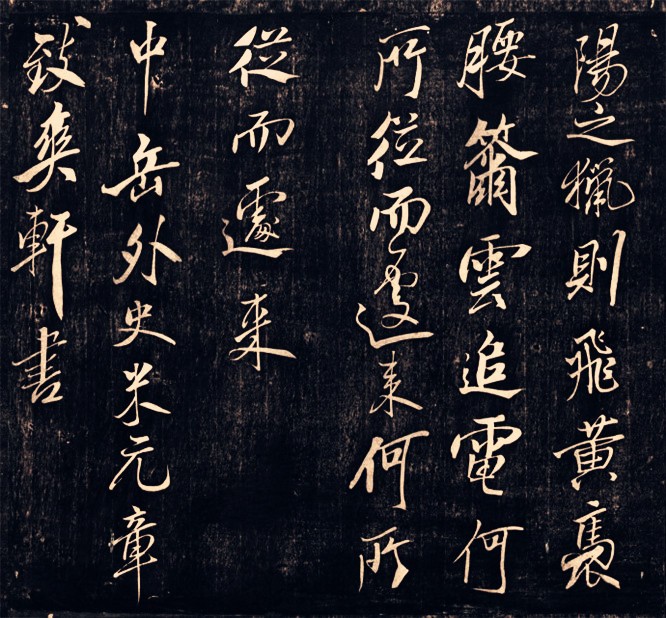 陽之獵則飛黃褭
腰籋雲追電何
所從而遽来何所
從而遽来
中岳外史米元章
致爽軒書